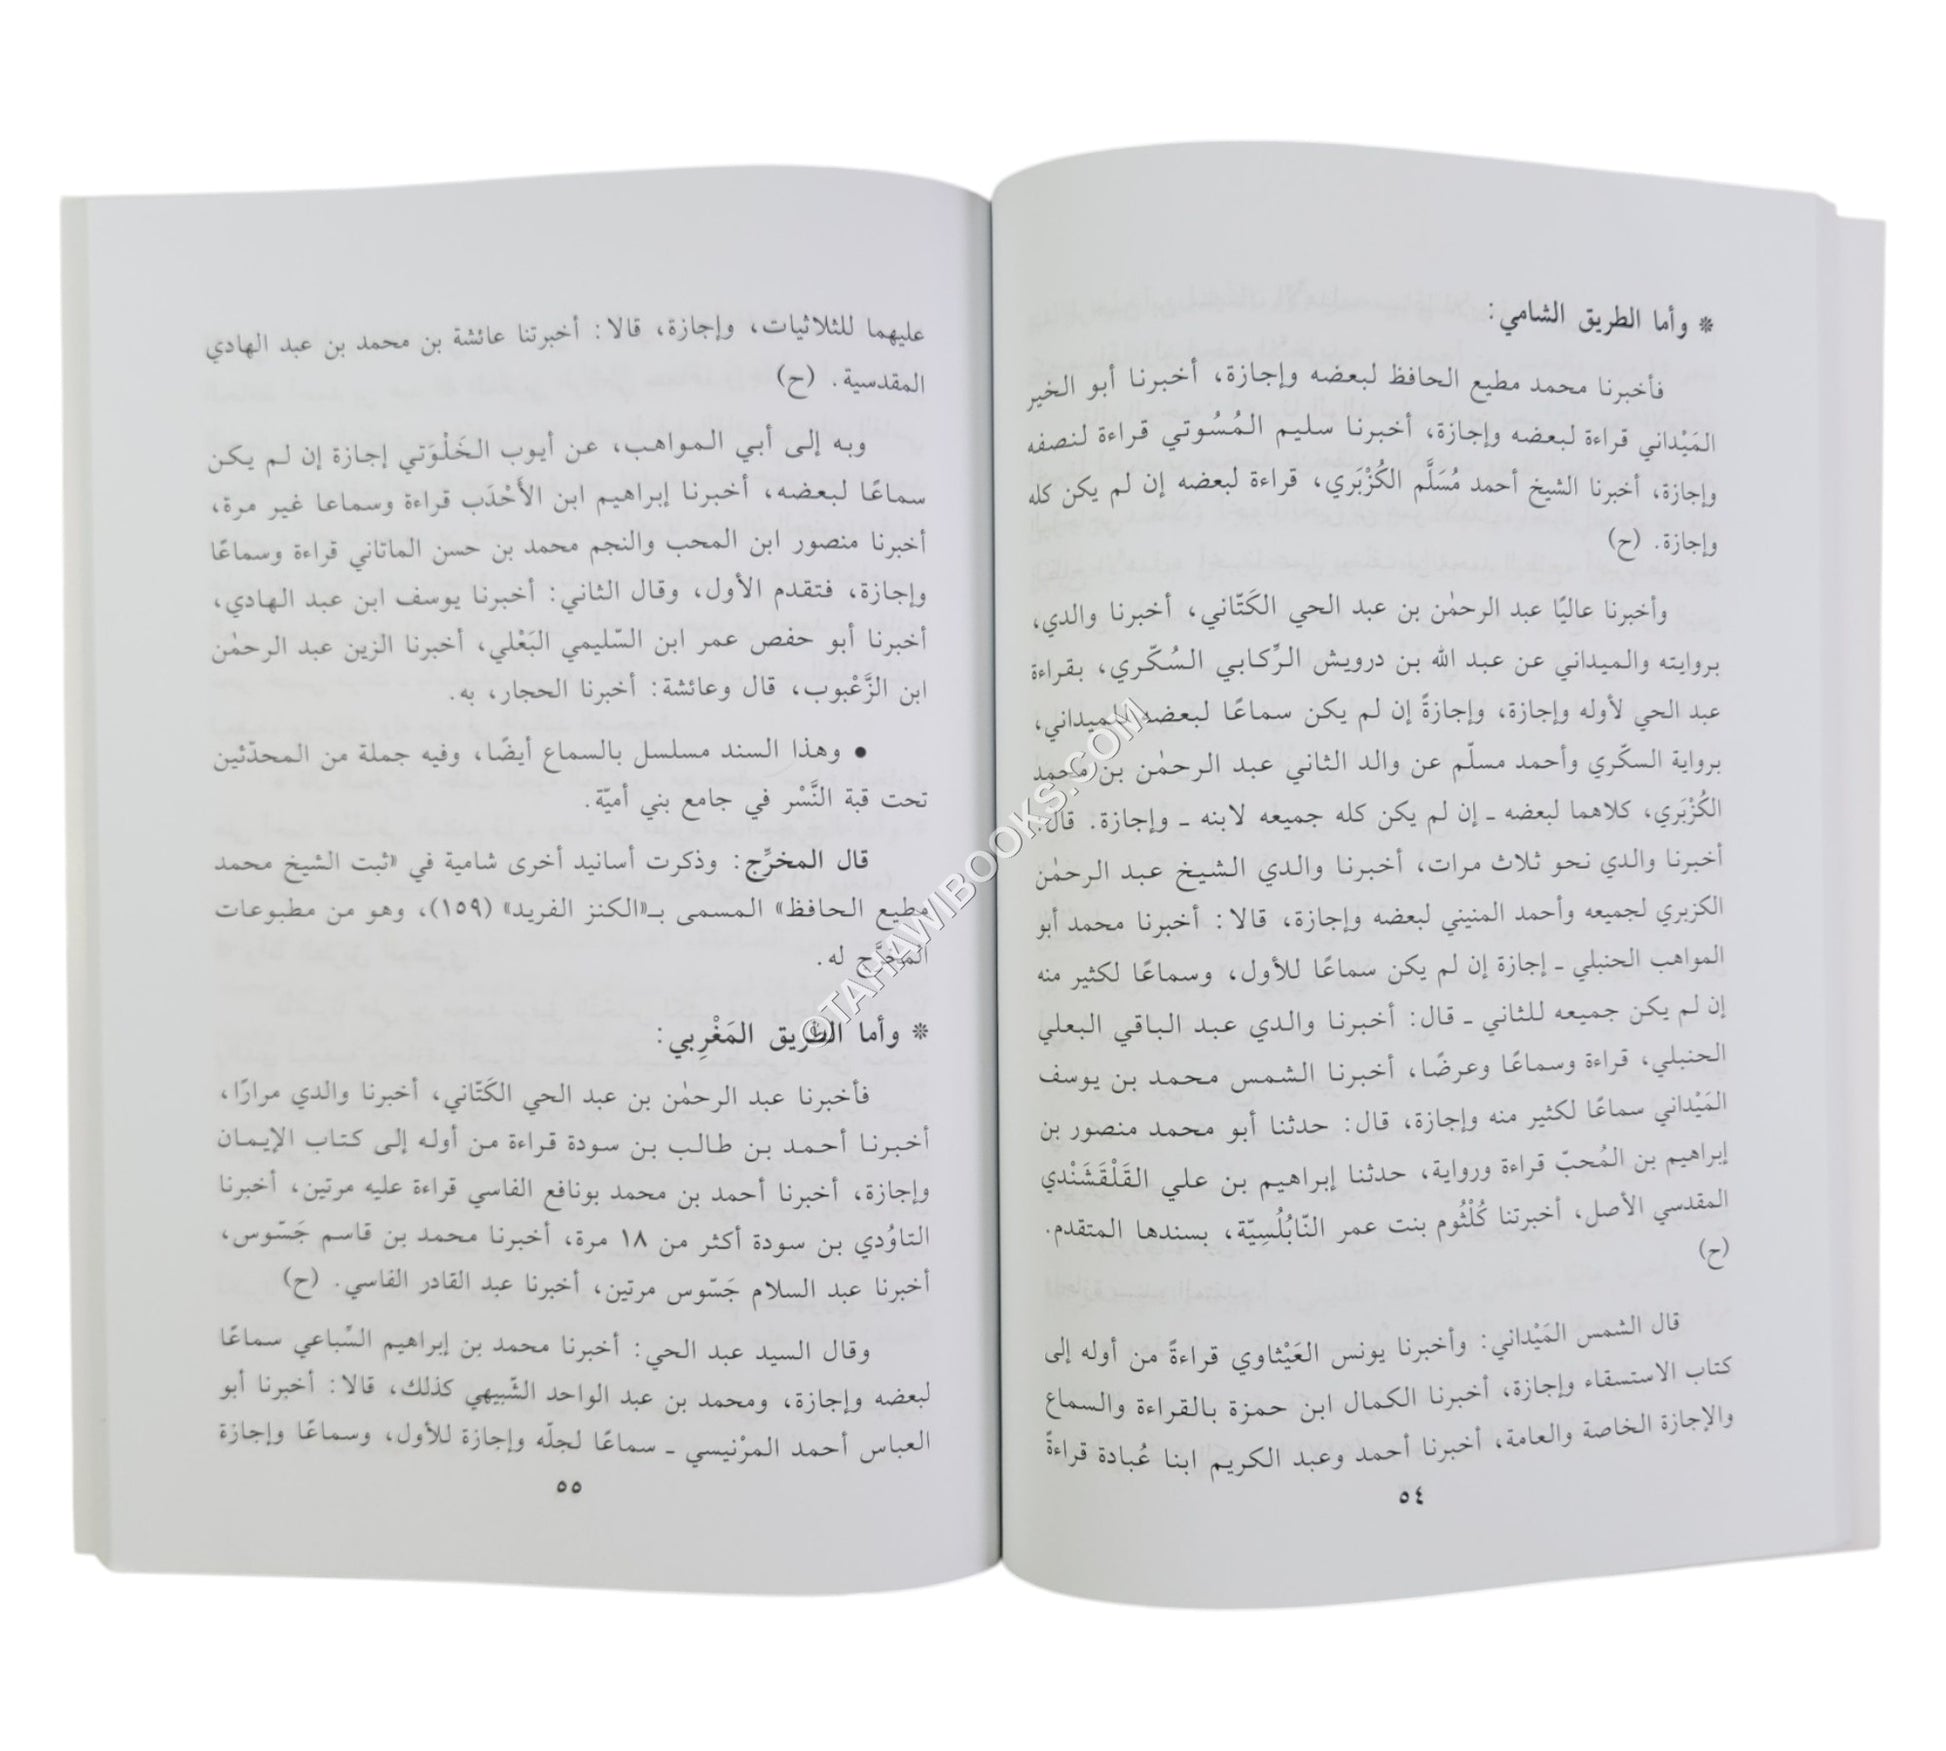 * وأما الطريق الشامي:
فأخبرنا محمد مطيع الحافظ لبعضه وإجازة، أخبرنا أبو الخير
المَيْداني قراءة لبعضه وإجازة، أخبرنا سليم المُسُوتي قراءة لنصفه
وإجازة، أخبرنا الشيخ أحمد مُسَلَّم الكُزْبَري، قراءة لبعضه إن لم يكن كله
وإجازة. (ح)
وأخبرنا عاليًا عبد الرحمٰن بن عبد الحي الكَتّاني، أخبرنا والدي،
بروايته والميداني عن عبد الله بن درويش الرِّكابي السُكّري، بقراءة
عبد الحي لأوله وإجازة، وإجازةً إن لم يكن سماعًا لبعضه للميداني،
برواية السكّري وأحمد مسلّم عن والد الثاني عبد الرحمٰن بن محمد
الكُزْبَري، كلاهما لبعضه ـ إن لم يكن كله جميعه لابنه ـ وإجازة. قال:
أخبرنا والدي نحو ثلاث مرات، أخبرنا والدي الشيخ عبد الرحمٰن
الكزبري لجميعه وأحمد المنيني لبعضه وإجازة، قالا: أخبرنا محمد أبو
المواهب الحنبلي ـ إجازة إن لم يكن سماعًا للأول، وسماعًا لكثير منه
إن لم يكن جميعه للثاني ـ قال: أخبرنا والدي عبد الباقي البعلي
الحنبلي، قراءة وسماعًا وعرضًا، أخبرنا الشمس محمد بن يوسف
المَيْداني سماعًا لكثير منه وإجازة، قال: حدثنا أبو محمد منصور بن
إبراهيم بن المُحبّ قراءة ورواية، حدثنا إبراهيم بن علي القَلْقَشَنْدي
المقدسي الأصل، أخبرتنا كُلْثُوم بنت عمر النّابُلُسِيّة، بسندها المتقدم.
(ح)
قال الشمس المَيْداني: وأخبرنا يونس العَيْثاوي قراءةً من أوله إلى
كتاب الاستسقاء وإجازة، أخبرنا الكمال ابن حمزة بالقراءة والسماع
والإجازة الخاصة والعامة، أخبرنا أحمد وعبد الكريم ابنا عُبادة قراءةً
٥٤
عليهما للثلاثيات، وإجازة، قالا: أخبرتنا عائشة بن محمد بن عبد الهادي
المقدسية. (ح)
وبه إلى أبي المواهب، عن أيوب الخَلْوَتي إجازة إن لم يكن
سماعًا لبعضه، أخبرنا إبراهيم ابن الأَحْدَب قراءة وسماعا غير مرة،
أخبرنا منصور ابن المحب والنجم محمد بن حسن الماتاني قراءة وسماعًا
وإجازة، فتقدم الأول، وقال الثاني: أخبرنا يوسف ابن عبد الهادي،
أخبرنا أبو حفص عمر ابن السّليمي البَعْلي، أخبرنا الزين عبد الرحمٰن
ابن الزَّعْبوب، قال وعائشة: أخبرنا الحجار، به.
● وهذا السند مسلسل بالسماع أيضًا، وفيه جملة من المحدّثين
تحت قبة النَّسْر في جامع بني أميّة.
قال المخرِّج: وذكرت أسانيد أخرى شامية في «ثبت الشيخ محمد
مطيع الحافظ» المسمى بـ«الكنز الفريد» (١٥٩)، وهو من مطبوعات
المخرَّج له.
* وأما الطريق المَغْرِبي:
فأخبرنا عبد الرحمٰن بن عبد الحي الكَتّاني، أخبرنا والدي مرارًا،
أخبرنا أحمد بن طالب بن سودة قراءة من أوله إلى كتاب الإيمان
وإجازة، أخبرنا أحمد بن محمد بونافع الفاسي قراءة عليه مرتين، أخبرنا
التاوُدي بن سودة أكثر من ١٨ مرة، أخبرنا محمد بن قاسم جَسّوس،
أخبرنا عبد السلام جَسّوس مرتين، أخبرنا عبد القادر الفاسي. (ح)
وقال السيد عبد الحي: أخبرنا محمد بن إبراهيم السِّباعي سماعًا
لبعضه وإجازة، ومحمد بن عبد الواحد الشّبيهي كذلك، قالا: أخبرنا أبو
العباس أحمد المرْنيسي ـ سماعًا لجلّه وإجازة للأول، وسماعًا وإجازة
٥٥
©TAHAWIBOOKS.COM